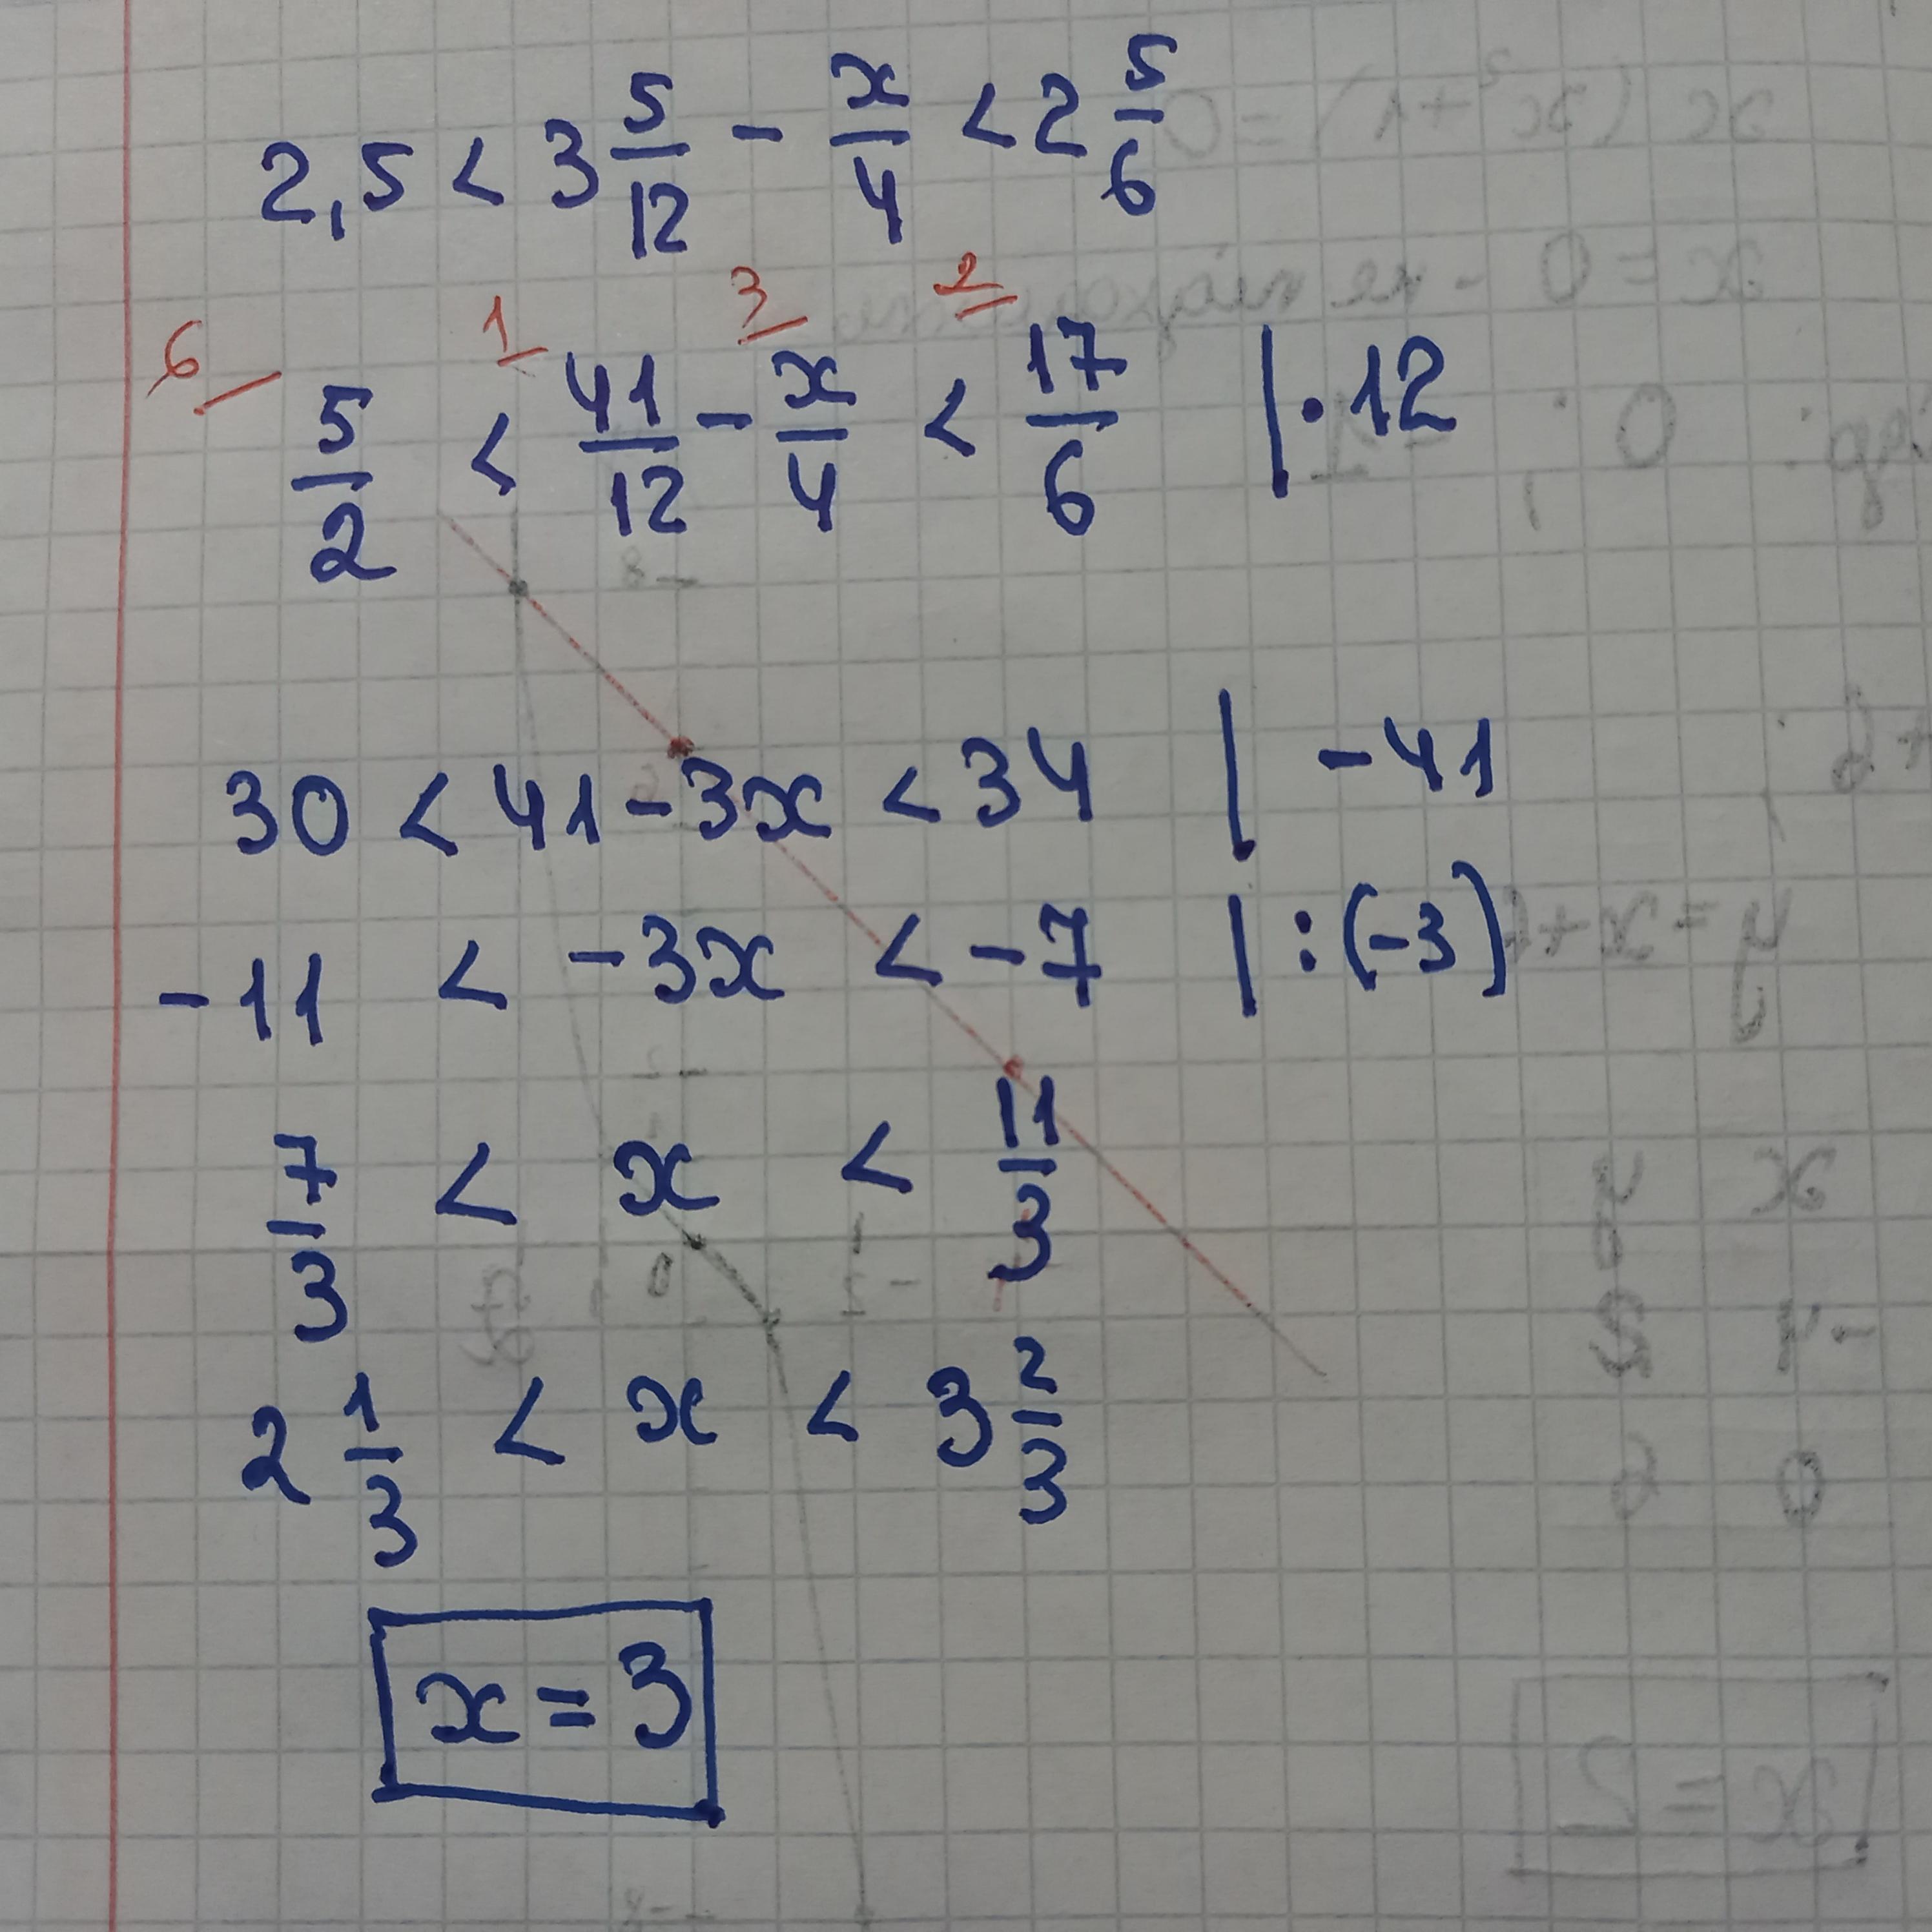 2,5 < 3 5/12 - x/4 < 2 5/6
6 1 3 2
5/2 < 41/12 - x/4 < 17/6 | · 12
30 < 41 - 3x < 34 | - 41
-11 < -3x < -7 | : (-3)
7/3 < x < 11/3
2 1/3 < x < 3 2/3
x = 3